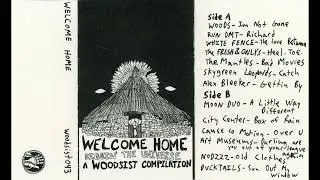 WELCOME HOME
woodsist 043
WELCOME HOME
DIGGIN' THE UNIVERSE
A WOODSIST COMPILATION
Side A
WOODS - I'm Not Gone
RUN DMT - Richard
WHITE FENCE - The Love Between
The FRESH & ONLYS - Heel. Toe.
The Mantles - Bad Movies
Skygreen Leopards - Catch
Alex Bleeker - Gettin By
Side B
MOON DUO - A Little Way
Different
City Center - Box of Rain
Cause Co Motion - Over U
Art Museums - Darling are
you out of your league
again
NODZZZ - Old Clothes
DUCKTAILS - Sun Out My
Window